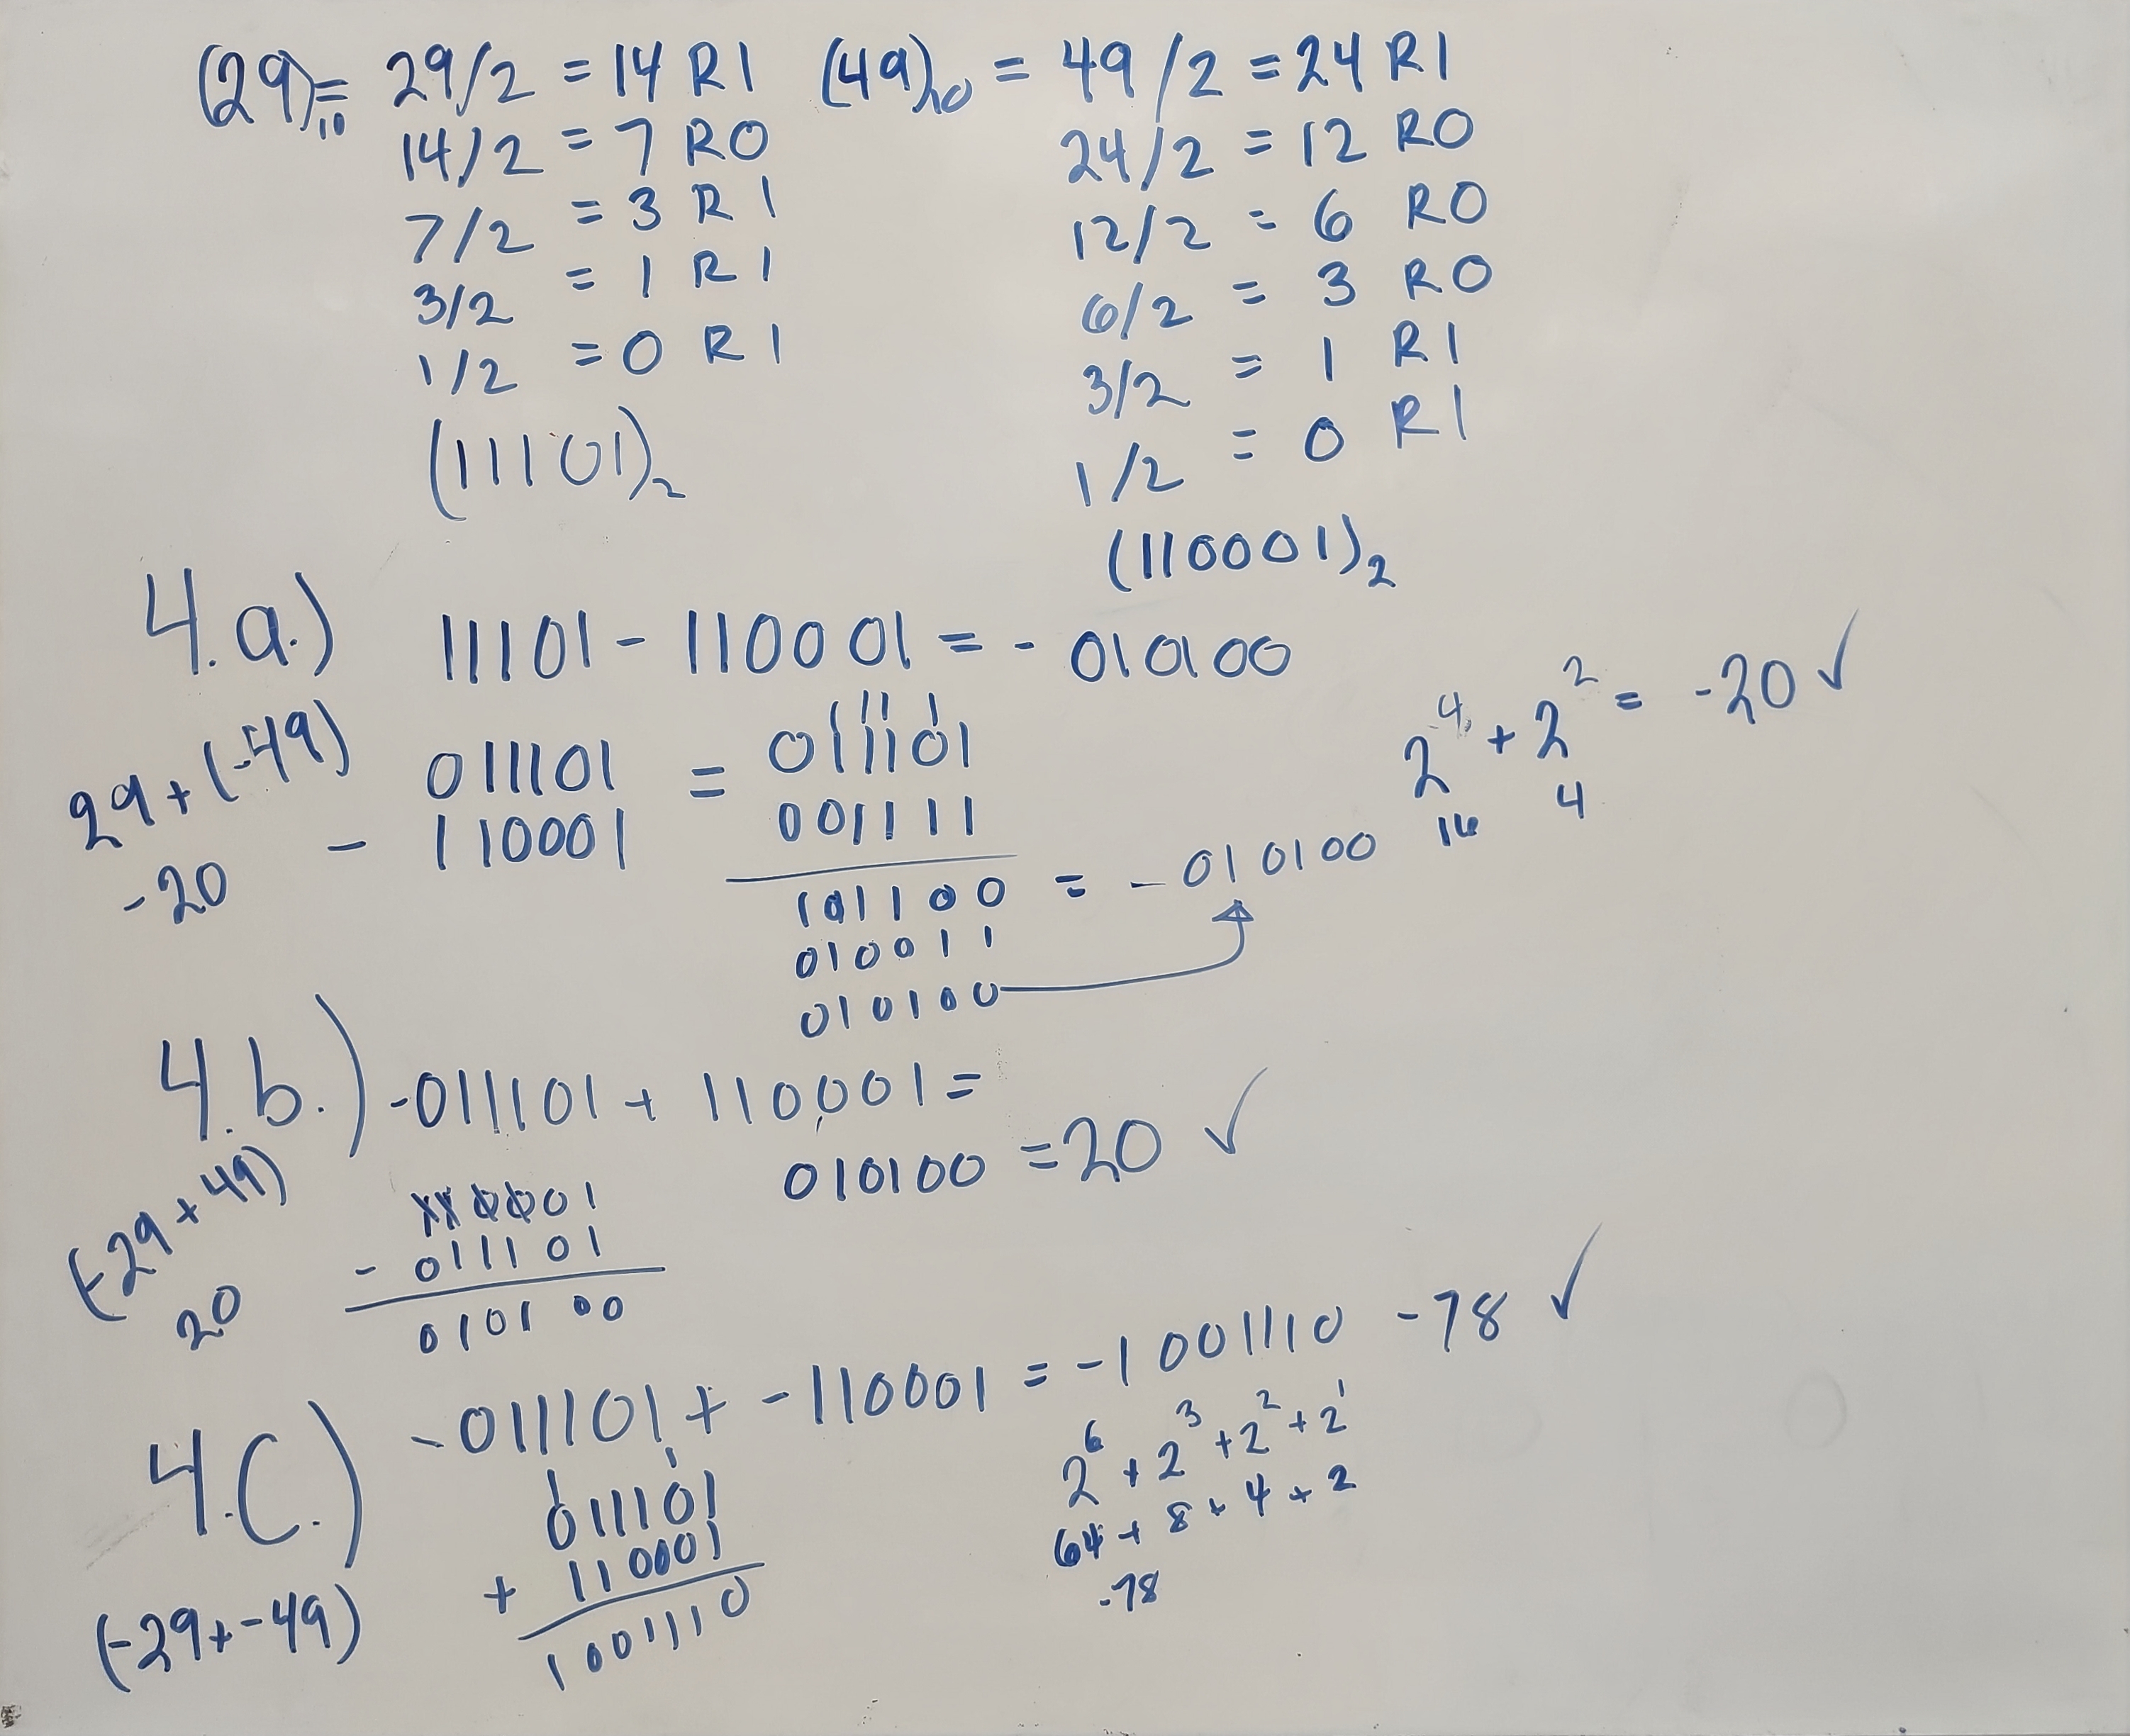 (29)₁₀ = 29/2 = 14 R1
14/2 = 7 R0
7/2 = 3 R1
3/2 = 1 R1
1/2 = 0 R1
(11101)₂
(49)₁₀ = 49/2 = 24 R1
24/2 = 12 R0
12/2 = 6 R0
6/2 = 3 R0
3/2 = 1 R1
1/2 = 0 R1
(110001)₂
4.a.) 11101 - 110001 = - 010100
29 + (-49)
-20
011101
- 110001
=
1 1 1 1
011101
001111
101100 = - 010100
010011
010100
2⁴ + 2² = -20 ✓
16 4
4.b.) -011101 + 110001 =
010100 = 20 ✓
(-29 + 49)
20
110001
- 011101
010100
4.C.) -011101 + -110001 = -1001110 -78 ✓
(-29 + -49)
1 1
011101
+ 110001
1001110
2⁶ + 2³ + 2² + 2¹
64 + 8 + 4 + 2
-78